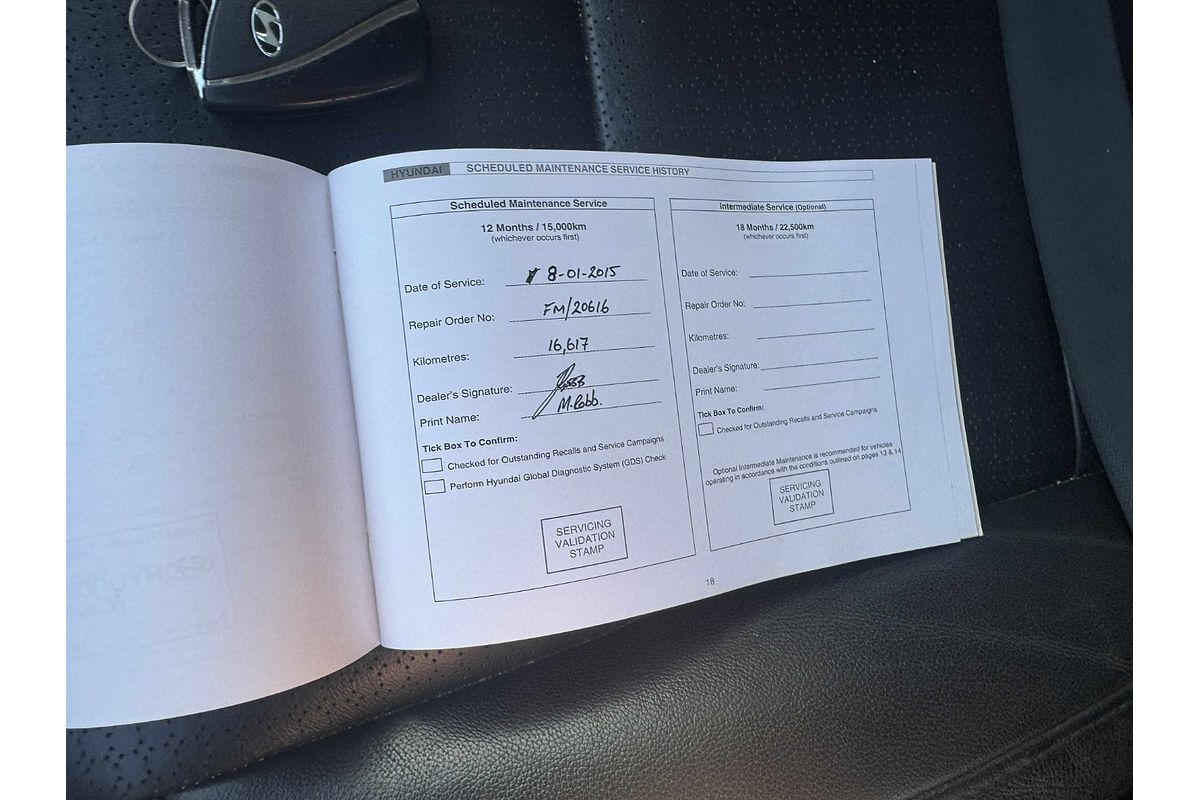 HYUNDAI SCHEDULED MAINTENANCE SERVICE HISTORY
Scheduled Maintenance Service
12 Months / 15,000km
(whichever occurs first)
Date of Service: 8-01-2015
Repair Order No: FM/20616
Kilometres: 16,617
Dealer's Signature:
Print Name: M. Robb.
Tick Box To Confirm:
Checked for Outstanding Recalls and Service Campaigns
Perform Hyundai Global Diagnostic System (GDS) Check
SERVICING
VALIDATION
STAMP
Intermediate Service (Optional)
18 Months / 22,500km
(whichever occurs first)
Date of Service:
Repair Order No:
Kilometres:
Dealer's Signature:
Print Name:
Tick Box To Confirm:
Checked for Outstanding Recalls and Service Campaigns
Optional Intermediate Maintenance is recommended for vehicles
operating in accordance with the conditions outlined on pages 13 & 14
SERVICING
VALIDATION
STAMP
18